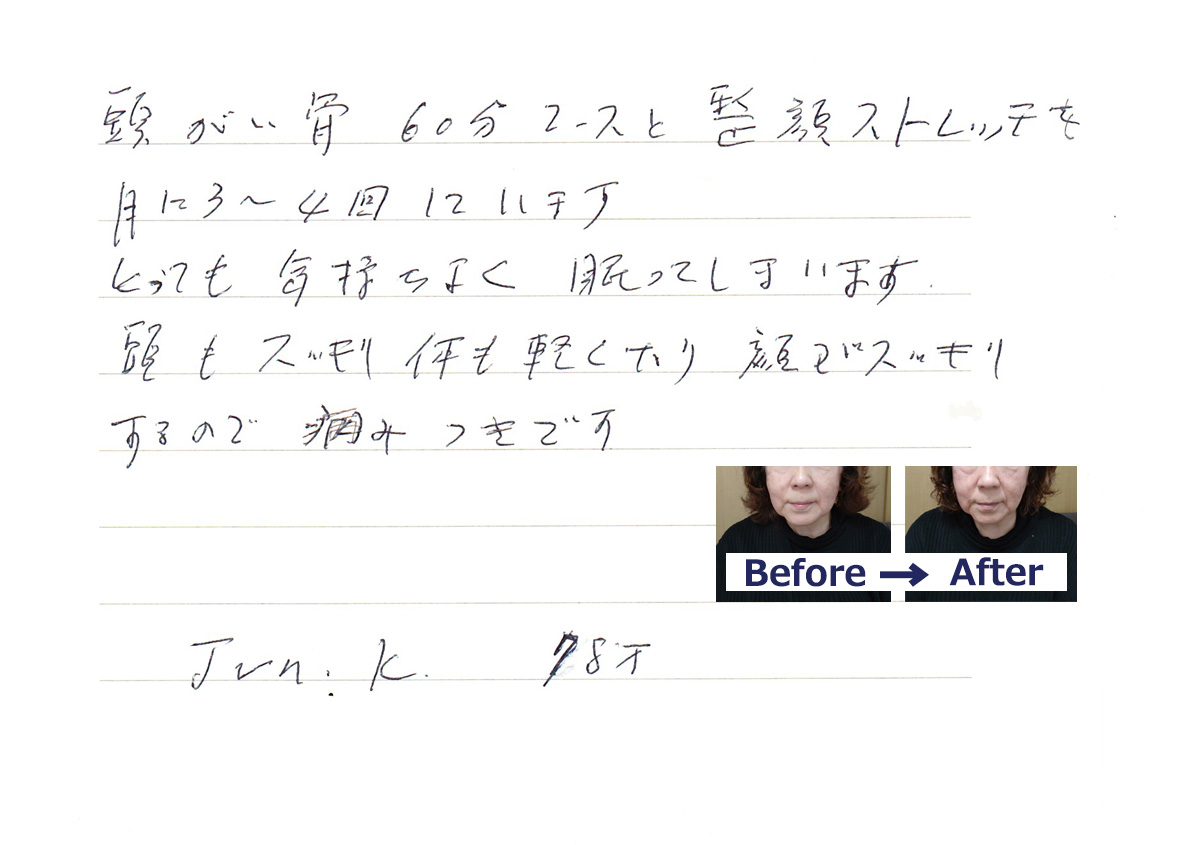 頭がい骨 60分コースと 整顔ストレッチを
月に3〜4回 に います
とっても 気持ちよく 眠ってしまいます.
頭も スッキリ 体も 軽くなり 顔もスッキリ
するので 病みつきです
Before → After
Jun. K. 78才